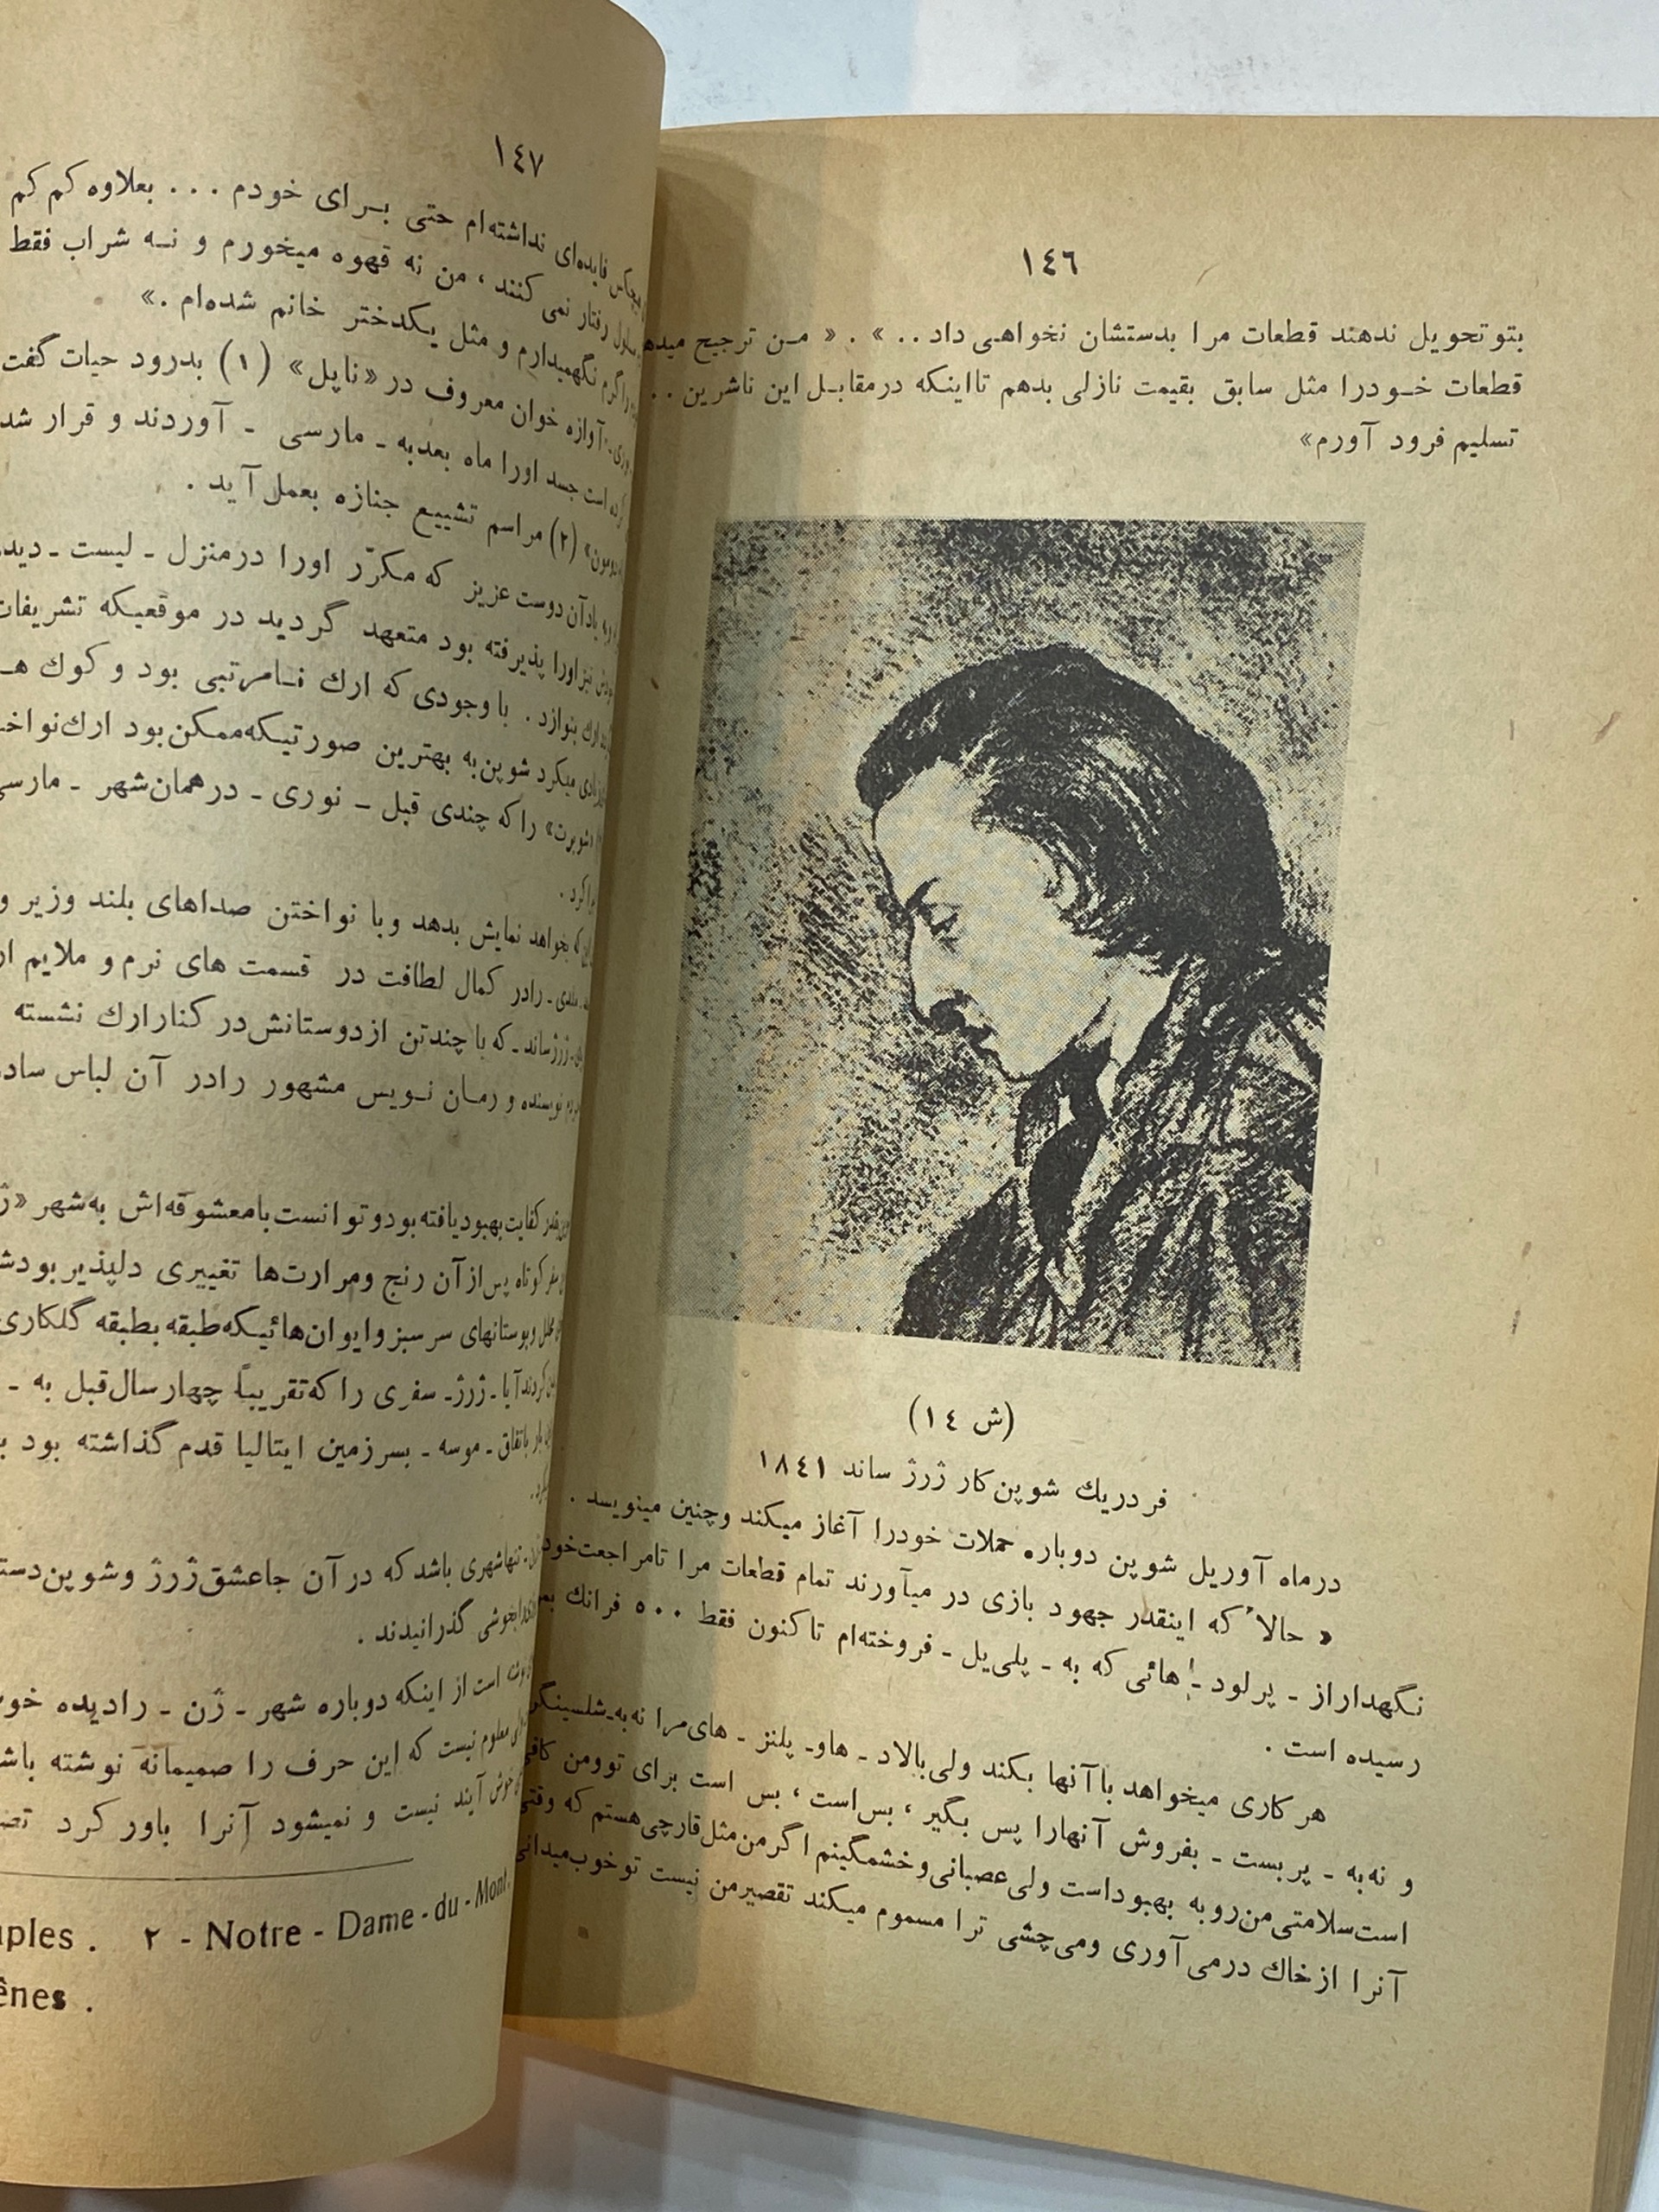 ١٤٦
بتو تحویل ندهند قطعات مرا بدستشان نخواهی داد . . » . « من ترجیح میدهم
قطعات خودرا مثل سابق بقیمت نازلی بدهم تااینکه درمقابل این ناشرین . . .
تسلیم فرود آورم»
(ش ١٤)
فردریك شوپن کار ژرژ ساند ١٨٤١
درماه آوریل شوپن دوباره حملات خودرا آغاز میکند وچنین مینویسد .
« حالا که اینقدر جهود بازی در میآورند تمام قطعات مرا تامراجعت خود
نگهداراز ـ پرلود ـ هائی که به ـ پلی‌یل ـ فروخته‌ام تاکنون فقط ٥٠٠ فرانك
رسیده است .
هرکاری میخواهد باآنها بکند ولی بالاد ـ هاو ـ پلنز ـ های‌مرا نه‌به ـ شلسینگر
و نه‌به ـ پربست ـ بفروش آنهارا پس بگیر ، بس‌است ، بس است برای تو ومن کافی
است سلامتی من رو به بهبود است ولی عصبانی و خشمگینم اگرمن مثل قارچی هستم که وقتی
آنرا ازخاك درمی‌آوری ومی‌چشی ترا مسموم میکند تقصیرمن نیست تو خوب میدانی
١٤٧
فایده‌ای نداشته‌ام حتی برای خودم . . . بعلاوه کم کم
رفتار نمی کنند ، من نه قهوه میخورم و نه شراب فقط
گرم نگهمیدارم و مثل یکدختر خانم شده‌ام .»
آوازه خوان معروف در «ناپل» (١) بدرود حیات گفت
است جسد اورا ماه بعدبه ـ مارسی ـ آوردند و قرار شد
(٢) مراسم تشییع جنازه بعمل آید .
یادآن دوست عزیز که مکرّر اورا درمنزل ـ لیست ـ دیده
نیز اورا پذیرفته بود متعهد گردید در موقعیکه تشریفات
ارك بنوازد . باوجودی که ارك نامرتبی بود و کوك
میکرد شوپن به بهترین صورتیکه‌ممکن بود ارك‌نواخت
را که چندی قبل ـ نوری ـ درهمان شهر ـ مارسی
بخواهد نمایش بدهد وبا نواختن صداهای بلند وزیر و
رادر کمال لطافت در قسمت های نرم و ملایم
ژرژساند ـ که با چندتن ازدوستانش در کنار ارك نشسته
نویسنده و رمان نویس مشهور رادر آن لباس ساده
کفایت بهبود یافته بود و توانست بامعشوقه‌اش به شهر
کوتاه پس از آن رنج ومرارت‌ها تغییری دلپذیر بود
وبوستانهای سرسبز وایوان‌هائیکه طبقه بطبقه گلکاری
آیا ـ ژرژ ـ سفری را که تقریباً چهارسال قبل به ـ
باتفاق ـ موسه ـ بسرزمین ایتالیا قدم گذاشته بود
تنها شهری باشد که در آن جا عشق ژرژ وشوپن
بخوشی گذرانیدند .
است از اینکه دوباره شهر ـ ژن ـ رادیده
معلوم نیست که این حرف را صمیمانه نوشته
خوش آیند نیست و نمیشود آنرا باور کرد
٢ - Notre - Dame - du - Mont.